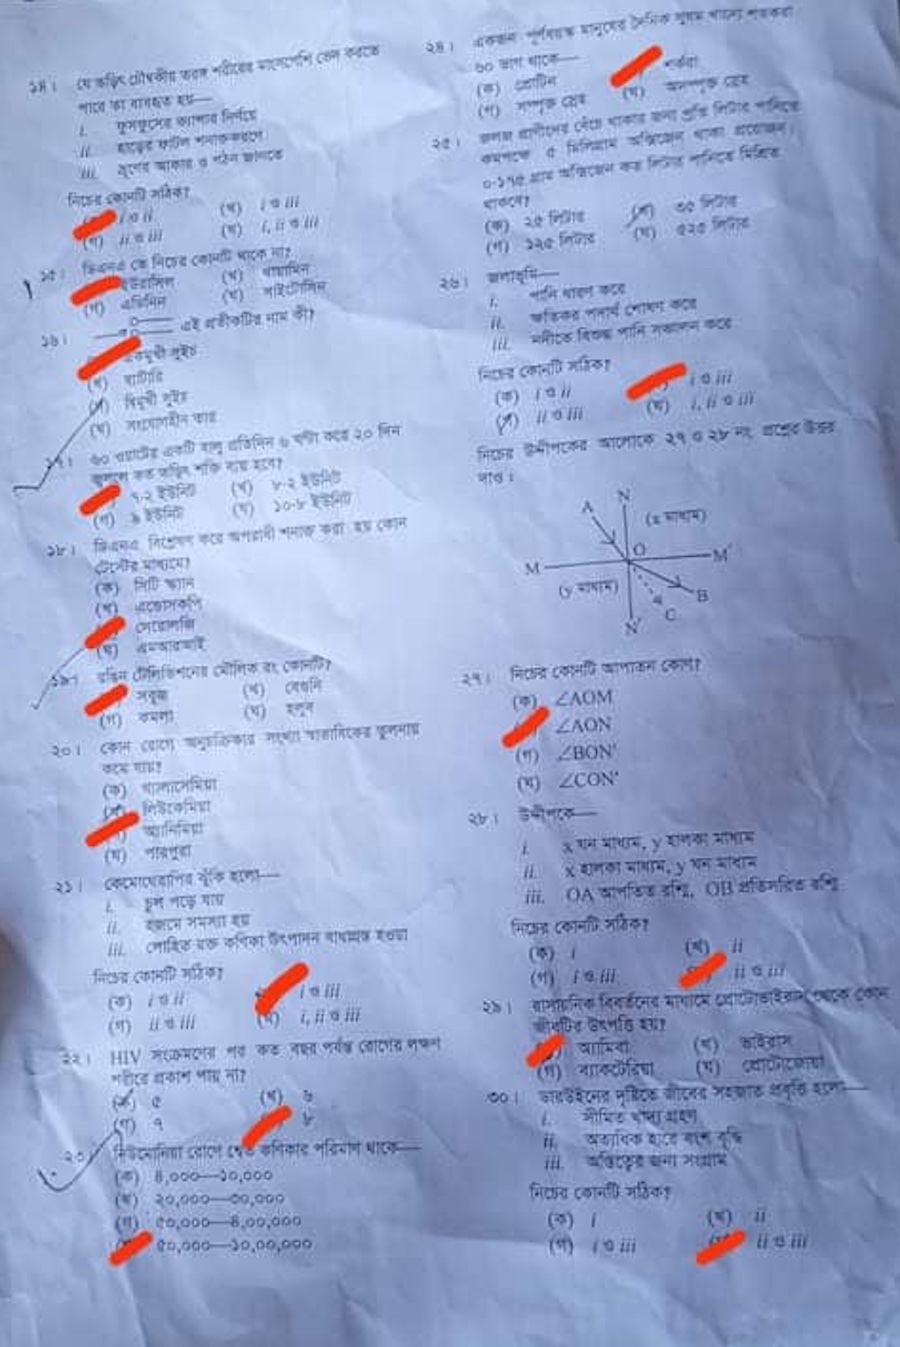 ১৪। যে তড়িৎ চৌম্বকীয় তরঙ্গ শরীরের মাংসপেশি ভেদ করতে
পারে তা ব্যবহৃত হয়—
i. ফুসফুসের ক্যান্সার নির্ণয়ে
ii. হাড়ের ফাটল শনাক্তকরণে
iii. ভ্রূণের আকার ও গঠন জানতে
নিচের কোনটি সঠিক?
i ও ii (খ) i ও iii
(গ) ii ও iii (ঘ) i, ii ও iii
১৫। ডিএনএ তে নিচের কোনটি থাকে না?
ইউরাসিল (খ) থায়ামিন
(গ) এডিনিন (ঘ) সাইটোসিন
১৬। এই প্রতীকটির নাম কী?
একমুখী সুইচ
(খ) ব্যাটারি
(গ) দ্বিমুখী সুইচ
(ঘ) সংযোগহীন তার
১৭। ৬০ ওয়াটের একটি বাল্ব প্রতিদিন ৬ ঘণ্টা করে ২০ দিন
জ্বললে কত তড়িৎ শক্তি ব্যয় হবে?
৭.২ ইউনিট (খ) ৮.২ ইউনিট
(গ) ৯ ইউনিট (ঘ) ১০.৮ ইউনিট
১৮। ডিএনএ বিশ্লেষণ করে অপরাধী শনাক্ত করা হয় কোন
টেস্টের মাধ্যমে?
(ক) সিটি স্ক্যান
(খ) এন্ডোসকপি
সেরোলজি
(ঘ) এমআরআই
১৯। রঙিন টেলিভিশনের মৌলিক রং কোনটি?
সবুজ (খ) বেগুনি
(গ) কমলা (ঘ) হলুদ
২০। কোন রোগে অনুচক্রিকার সংখ্যা স্বাভাবিকের তুলনায়
কমে যায়?
(ক) থ্যালাসেমিয়া
(খ) লিউকেমিয়া
অ্যানিমিয়া
(ঘ) পারপুরা
২১। কেমোথেরাপির ঝুঁকি হলো—
i. চুল পড়ে যায়
ii. হজমে সমস্যা হয়
iii. লোহিত রক্ত কণিকা উৎপাদন বাধাগ্রস্ত হওয়া
নিচের কোনটি সঠিক?
(ক) i ও ii i ও iii
(গ) ii ও iii (ঘ) i, ii ও iii
২২। HIV সংক্রমণের পর কত বছর পর্যন্ত রোগের লক্ষণ
শরীরে প্রকাশ পায় না?
(ক) ৫ (খ) ৬
(গ) ৭ ৮
২৩। নিউমোনিয়া রোগে শ্বেত কণিকার পরিমাণ থাকে—
(ক) ৪,০০০—১০,০০০
(খ) ২০,০০০—৩০,০০০
(গ) ৫০,০০০—৪,০০,০০০
৫০,০০০—১০,০০,০০০
২৪। একজন পূর্ণবয়স্ক মানুষের দৈনিক সুষম খাদ্যে শতকরা
৬০ ভাগ থাকে—
(ক) প্রোটিন শর্করা
(গ) সম্পৃক্ত স্নেহ (ঘ) অসম্পৃক্ত স্নেহ
২৫। জলজ প্রাণীদের বেঁচে থাকার জন্য প্রতি লিটার পানিতে
কমপক্ষে ৫ মিলিগ্রাম অক্সিজেন থাকা প্রয়োজন।
০.১৭৫ গ্রাম অক্সিজেন কত লিটার পানিতে মিশ্রিত
থাকবে?
(ক) ২৫ লিটার (খ) ৩৫ লিটার
(গ) ১২৫ লিটার (ঘ) ৫২৫ লিটার
২৬। জলাভূমি—
i. পানি ধারণ করে
ii. ক্ষতিকর পদার্থ শোষণ করে
iii. নদীতে বিশুদ্ধ পানি সঞ্চালন করে
নিচের কোনটি সঠিক?
(ক) i ও ii i ও iii
(গ) ii ও iii (ঘ) i, ii ও iii
নিচের উদ্দীপকের আলোকে ২৭ ও ২৮ নং প্রশ্নের উত্তর
দাও :
N
A (x মাধ্যম)
O
M M′
(y মাধ্যম) B
C
N′
২৭। নিচের কোনটি আপাতন কোণ?
(ক) ∠AOM
∠AON
(গ) ∠BON′
(ঘ) ∠CON′
২৮। উদ্দীপকে—
i. x ঘন মাধ্যম, y হালকা মাধ্যম
ii. x হালকা মাধ্যম, y ঘন মাধ্যম
iii. OA আপতিত রশ্মি, OB প্রতিসরিত রশ্মি
নিচের কোনটি সঠিক?
(ক) i (খ) ii
(গ) i ও iii ii ও iii
২৯। রাসায়নিক বিবর্তনের মাধ্যমে প্রোটোভাইরাস থেকে কোন
জীবটির উৎপত্তি হয়?
আমিবা (খ) ভাইরাস
(গ) ব্যাকটেরিয়া (ঘ) প্রোটোজোয়া
৩০। ডারউইনের দৃষ্টিতে জীবের সহজাত প্রবৃত্তি হলো—
i. সীমিত খাদ্য গ্রহণ
ii. অত্যধিক হারে বংশ বৃদ্ধি
iii. অস্তিত্বের জন্য সংগ্রাম
নিচের কোনটি সঠিক?
(ক) i (খ) ii
(গ) i ও iii ii ও iii